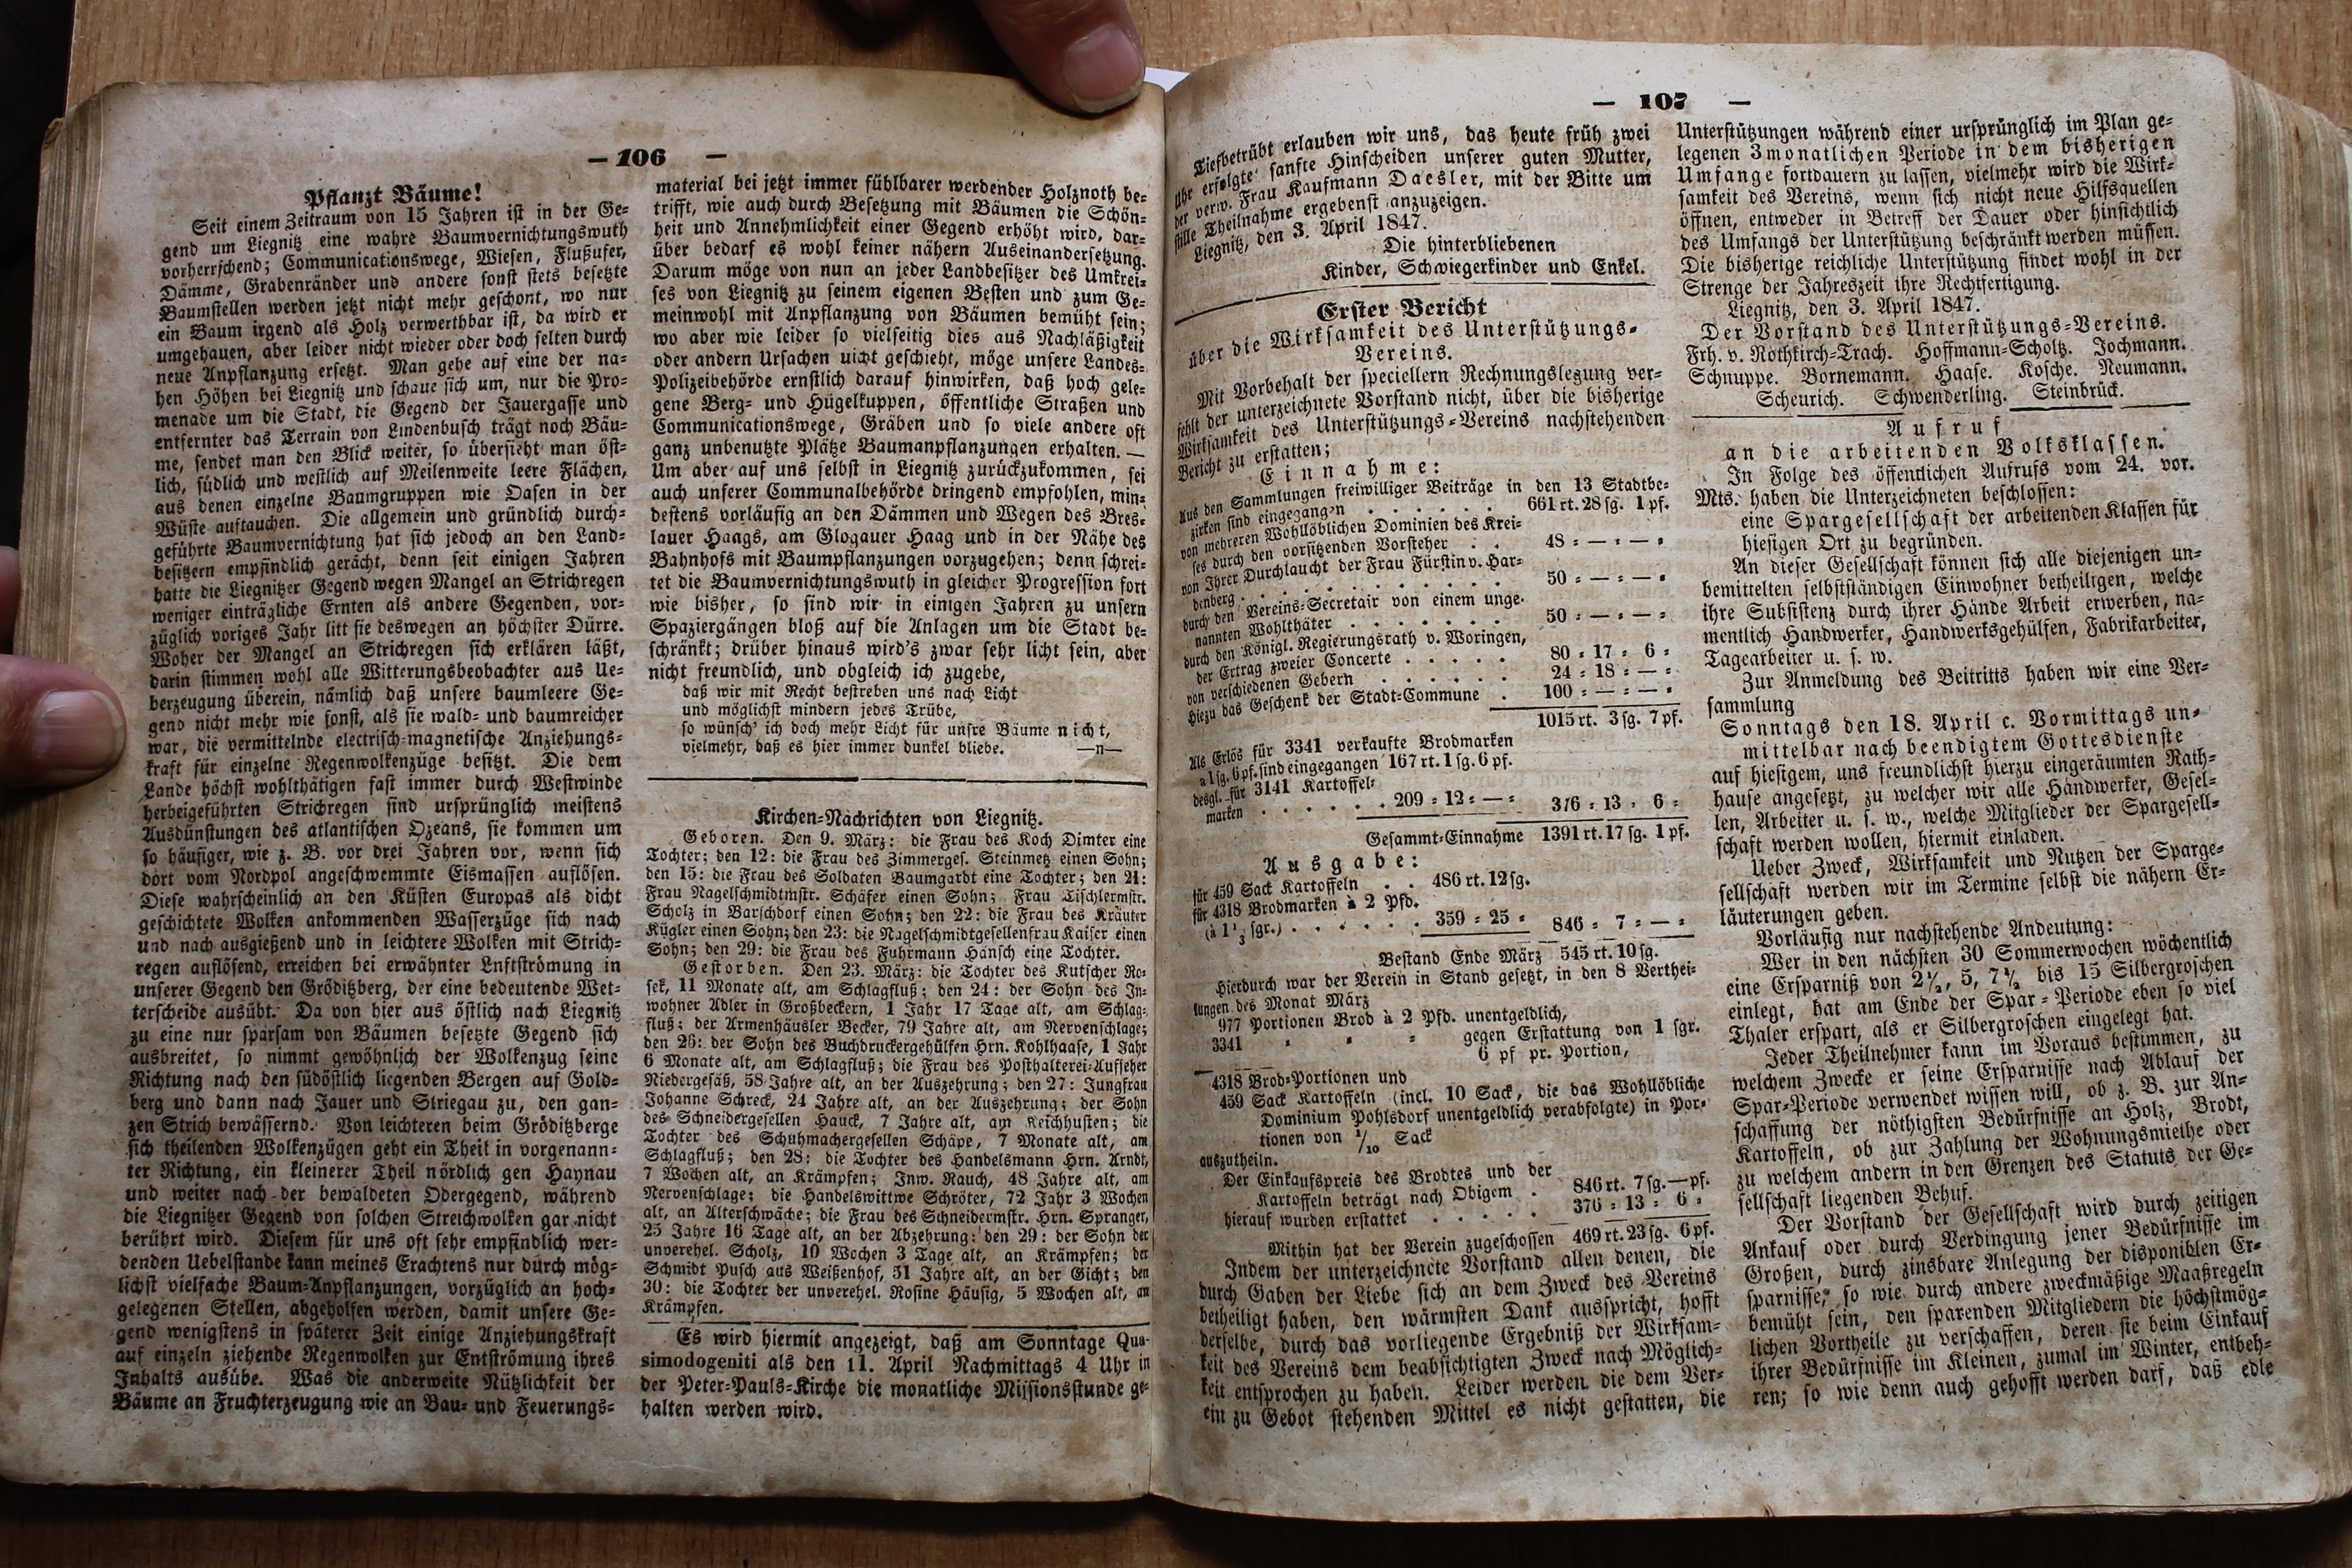 — 106 —
Pflanzt Bäume!
Seit einem Zeitraum von 15 Jahren ist in der Ge⸗
gend um Liegnitz eine wahre Baumvernichtungswuth
vorherrschend; Communicationswege, Wiesen, Flußufer,
Dämme, Grabenränder und andere sonst stets besetzte
Baumstellen werden jetzt nicht mehr geschont, wo nur
ein Baum irgend als Holz verwerthbar ist, da wird er
umgehauen, aber leider nicht wieder oder doch selten durch
neue Anpflanzung ersetzt. Man gehe auf eine der na⸗
hen Höhen bei Liegnitz und schaue sich um, nur die Pro⸗
menade um die Stadt, die Gegend der Jauergasse und
entfernter das Terrain von Lindenbusch trägt noch Bäu⸗
me, sendet man den Blick weiter, so übersieht man öst⸗
lich, südlich und westlich auf Meilenweite leere Flächen,
aus denen einzelne Baumgruppen wie Oasen in der
Wüste auftauchen. Die allgemein und gründlich durch⸗
geführte Baumvernichtung hat sich jedoch an den Land⸗
besitzern empfindlich gerächt, denn seit einigen Jahren
hatte die Liegnitzer Gegend wegen Mangel an Strichregen
weniger einträgliche Ernten als andere Gegenden, vor⸗
züglich voriges Jahr litt sie deswegen an höchster Dürre.
Woher der Mangel an Strichregen sich erklären läßt,
darin stimmen wohl alle Witterungsbeobachter aus Ue⸗
berzeugung überein, nämlich daß unsere baumleere Ge⸗
gend nicht mehr wie sonst, als sie wald⸗ und baumreicher
war, die vermittelnde electrisch⸗magnetische Anziehungs⸗
kraft für einzelne Regenwolkenzüge besitzt. Die dem
Lande höchst wohlthätigen fast immer durch Westwinde
herbeigeführten Strichregen sind ursprünglich meistens
Ausdünstungen des atlantischen Ozeans, sie kommen um
so häufiger, wie z. B. vor drei Jahren vor, wenn sich
dort vom Nordpol angeschwemmte Eismassen auflösen.
Diese wahrscheinlich an den Küsten Europas als dicht
geschichtete Wolken ankommenden Wasserzüge sich nach
und nach ausgießend und in leichtere Wolken mit Strich⸗
regen auflösend, erreichen bei erwähnter Lnftströmung in
unserer Gegend den Gröditzberg, der eine bedeutende Wet⸗
terscheide ausübt. Da von hier aus östlich nach Liegnitz
zu eine nur sparsam von Bäumen besetzte Gegend sich
ausbreitet, so nimmt gewöhnlich der Wolkenzug seine
Richtung nach den südöstlich liegenden Bergen auf Gold⸗
berg und dann nach Jauer und Striegau zu, den gan⸗
zen Strich bewässernd. Von leichteren beim Gröditzberge
sich theilenden Wolkenzügen geht ein Theil in vorgenann⸗
ter Richtung, ein kleinerer Theil nördlich gen Haynau
und weiter nach der bewaldeten Odergegend, während
die Liegnitzer Gegend von solchen Streichwolken gar nicht
berührt wird. Diesem für uns oft sehr empfindlich wer⸗
denden Uebelstande kann meines Erachtens nur durch mög⸗
lichst vielfache Baum⸗Anpflanzungen, vorzüglich an hoch⸗
gelegenen Stellen, abgeholfen werden, damit unsere Ge⸗
gend wenigstens in späterer Zeit einige Anziehungskraft
auf einzeln ziehende Regenwolken zur Entströmung ihres
Inhalts ausübe. Was die anderweite Nützlichkeit der
Bäume an Fruchterzeugung wie an Bau⸗ und Feuerungs⸗
material bei jetzt immer fühlbarer werdender Holznoth be⸗
trifft, wie auch durch Besetzung mit Bäumen die Schön⸗
heit und Annehmlichkeit einer Gegend erhöht wird, dar⸗
über bedarf es wohl keiner nähern Auseinandersetzung.
Darum möge von nun an jeder Landbesitzer des Umkrei⸗
ses von Liegnitz zu seinem eigenen Besten und zum Ge⸗
meinwohl mit Anpflanzung von Bäumen bemüht sein;
wo aber wie leider so vielseitig dies aus Nachläßigkeit
oder andern Ursachen uicht geschieht, möge unsere Landes⸗
Polizeibehörde ernstlich darauf hinwirken, daß hoch gele⸗
gene Berg⸗ und Hügelkuppen, öffentliche Straßen und
Communicationswege, Gräben und so viele andere oft
ganz unbenutzte Plätze Baumanpflanzungen erhalten. —
Um aber auf uns selbst in Liegnitz zurückzukommen, sei
auch unserer Communalbehörde dringend empfohlen, min⸗
destens vorläufig an den Dämmen und Wegen des Bres⸗
lauer Haags, am Glogauer Haag und in der Nähe des
Bahnhofs mit Baumpflanzungen vorzugehen; denn schrei⸗
tet die Baumvernichtungswuth in gleicher Progression fort
wie bisher, so sind wir in einigen Jahren zu unsern
Spaziergängen bloß auf die Anlagen um die Stadt be⸗
schränkt; drüber hinaus wird's zwar sehr licht sein, aber
nicht freundlich, und obgleich ich zugebe,
daß wir mit Recht bestreben uns nach Licht
und möglichst mindern jedes Trübe,
so wünsch' ich doch mehr Licht für unsre Bäume nicht,
vielmehr, daß es hier immer dunkel bliebe. —n—
Kirchen⸗Nachrichten von Liegnitz.
Geboren. Den 9. März: die Frau des Koch Dimter eine
Tochter; den 12: die Frau des Zimmerges. Steinmetz einen Sohn;
den 15: die Frau des Soldaten Baumgardt eine Tochter; den 21:
Frau Nagelschmidtmstr. Schäfer einen Sohn; Frau Tischlermstr.
Scholz in Barschdorf einen Sohn; den 22: die Frau des Kräuter
Kügler einen Sohn; den 23: die Nagelschmidtgesellenfrau Kaiser einen
Sohn; den 29: die Frau des Fuhrmann Hänsch eine Tochter.
Gestorben. Den 23. März: die Tochter des Kutscher Ro⸗
sek, 11 Monate alt, am Schlagfluß; den 24: der Sohn des In⸗
wohner Adler in Großbeckern, 1 Jahr 17 Tage alt, am Schlag⸗
fluß; der Armenhäusler Becker, 79 Jahre alt, am Nervenschlage;
den 26: der Sohn des Buchdruckergehülfen Hrn. Kohlhaase, 1 Jahr
6 Monate alt, am Schlagfluß; die Frau des Posthalterei⸗Aufseher
Niebergesäß, 58 Jahre alt, an der Auszehrung; den 27: Jungfrau
Johanne Schreck, 24 Jahre alt, an der Auszehrung; der Sohn
des Schneidergesellen Hauck, 7 Jahre alt, am Keichhusten; die
Tochter des Schuhmachergesellen Schäpe, 7 Monate alt, am
Schlagfluß; den 28: die Tochter des Handelsmann Hrn. Arndt,
7 Wochen alt, an Krämpfen; Inw. Rauch, 48 Jahre alt, am
Nervenschlage; die Handelswittwe Schröter, 72 Jahr 3 Wochen
alt, an Alterschwäche; die Frau des Schneidermstr. Hrn. Spranger,
25 Jahre 16 Tage alt, an der Abzehrung; den 29: der Sohn der
unverehel. Scholz, 10 Wochen 3 Tage alt, an Krämpfen; der
Schmidt Pusch aus Weißenhof, 51 Jahre alt, an der Gicht; den
30: die Tochter der unverehel. Rosine Häusig, 5 Wochen alt, an
Krämpfen.
Es wird hiermit angezeigt, daß am Sonntage Qua⸗
simodogeniti als den 11. April Nachmittags 4 Uhr in
der Peter⸗Pauls⸗Kirche die monatliche Missionsstunde ge⸗
halten werden wird.
— 107 —
Tiefbetrübt erlauben wir uns, das heute früh zwei
Uhr erfolgte sanfte Hinscheiden unserer guten Mutter,
der verw. Frau Kaufmann Daesler, mit der Bitte um
stille Theilnahme ergebenst anzuzeigen.
Liegnitz, den 3. April 1847.
Die hinterbliebenen
Kinder, Schwiegerkinder und Enkel.
Erster Bericht
über die Wirksamkeit des Unterstützungs⸗
Vereins.
Mit Vorbehalt der speciellern Rechnungslegung ver⸗
fehlt der unterzeichnete Vorstand nicht, über die bisherige
Wirksamkeit des Unterstützungs⸗Vereins nachstehenden
Bericht zu erstatten;
Einnahme:
Aus den Sammlungen freiwilliger Beiträge in den 13 Stadtbe⸗
zirken sind eingegangen . . . . . . 661 rt. 28 sg. 1 pf.
von mehreren Wohllöblichen Dominien des Krei⸗
ses durch den vorsitzenden Vorsteher . . 48 ⸗ — ⸗ — ⸗
von Ihrer Durchlaucht der Frau Fürstin v. Har⸗
denberg . . . . . . . . 50 ⸗ — ⸗ — ⸗
durch den Vereins⸗Secretair von einem unge⸗
nannten Wohlthäter . . . . . . 50 ⸗ — ⸗ — ⸗
durch den Königl. Regierungsrath v. Woringen,
der Ertrag zweier Concerte . . . . . 80 ⸗ 17 ⸗ 6 ⸗
von verschiedenen Gebern . . . . . 24 ⸗ 18 ⸗ — ⸗
hiezu das Geschenk der Stadt⸗Commune . 100 ⸗ — ⸗ — ⸗
1015 rt. 3 sg. 7 pf.
Als Erlös für 3341 verkaufte Brodmarken
a 1 sg. 6 pf. sind eingegangen 167 rt. 1 sg. 6 pf.
desgl. für 3141 Kartoffel⸗
marken . . . . . . 209 ⸗ 12 ⸗ — ⸗ 376 ⸗ 13 ⸗ 6 ⸗
Gesammt⸗Einnahme 1391 rt. 17 sg. 1 pf.
Ausgabe:
für 459 Sack Kartoffeln . . 486 rt. 12 sg.
für 4318 Brodmarken à 2 Pfd.
(à 1 2/3 sgr.) . . . . . . 359 ⸗ 25 ⸗ 846 ⸗ 7 ⸗ — ⸗
Bestand Ende März 545 rt. 10 sg.
Hierdurch war der Verein in Stand gesetzt, in den 8 Verthei⸗
lungen des Monat März
977 Portionen Brod à 2 Pfd. unentgeldlich,
3341 ⸗ ⸗ ⸗ gegen Erstattung von 1 sgr.
6 pf pr. Portion,
4318 Brod⸗Portionen und
459 Sack Kartoffeln (incl. 10 Sack, die das Wohllöbliche
Dominium Pohlsdorf unentgeldlich verabfolgte) in Por⸗
tionen von 1/10 Sack
auszutheiln.
Der Einkaufspreis des Brodtes und der
Kartoffeln beträgt nach Obigem . 846 rt. 7 sg. — pf.
hierauf wurden erstattet . . . . . 376 ⸗ 13 ⸗ 6 ⸗
Mithin hat der Verein zugeschossen 469 rt. 23 sg. 6 pf.
Indem der unterzeichnete Vorstand allen denen, die
durch Gaben der Liebe sich an dem Zweck des Vereins
betheiligt haben, den wärmsten Dank ausspricht, hofft
derselbe, durch das vorliegende Ergebniß der Wirksam⸗
keit des Vereins dem beabsichtigten Zweck nach Möglich⸗
keit entsprochen zu haben. Leider werden die dem Ver⸗
ein zu Gebot stehenden Mittel es nicht gestatten, die
Unterstützungen während einer ursprünglich im Plan ge⸗
legenen 3monatlichen Periode in dem bisherigen
Umfange fortdauern zu lassen, vielmehr wird die Wirk⸗
samkeit des Vereins, wenn sich nicht neue Hilfsquellen
öffnen, entweder in Betreff der Dauer oder hinsichtlich
des Umfangs der Unterstützung beschränkt werden müssen.
Die bisherige reichliche Unterstützung findet wohl in der
Strenge der Jahreszeit ihre Rechtfertigung.
Liegnitz, den 3. April 1847.
Der Vorstand des Unterstützungs⸗Vereins.
Frh. v. Rothkirch⸗Trach. Hoffmann⸗Scholtz. Jochmann.
Schnuppe. Bornemann. Haase. Kosche. Neumann.
Scheurich. Schwenderling. Steinbrück.
Aufruf
an die arbeitenden Volksklassen.
In Folge des öffentlichen Aufrufs vom 24. vor.
Mts. haben die Unterzeichneten beschlossen:
eine Spargesellschaft der arbeitenden Klassen für
hiesigen Ort zu begründen.
An dieser Gesellschaft können sich alle diejenigen un⸗
bemittelten selbstständigen Einwohner betheiligen, welche
ihre Subsistenz durch ihrer Hände Arbeit erwerben, na⸗
mentlich Handwerker, Handwerksgehülfen, Fabrikarbeiter,
Tagearbeiter u. s. w.
Zur Anmeldung des Beitritts haben wir eine Ver⸗
sammlung
Sonntags den 18. April c. Vormittags un⸗
mittelbar nach beendigtem Gottesdienste
auf hiesigem, uns freundlichst hierzu eingeräumten Rath⸗
hause angesetzt, zu welcher wir alle Handwerker, Gesel⸗
len, Arbeiter u. s. w., welche Mitglieder der Spargesell⸗
schaft werden wollen, hiermit einladen.
Ueber Zweck, Wirksamkeit und Nutzen der Sparge⸗
sellschaft werden wir im Termine selbst die nähern Er⸗
läuterungen geben.
Vorläufig nur nachstehende Andeutung:
Wer in den nächsten 30 Sommerwochen wöchentlich
eine Ersparniß von 2½, 5, 7½ bis 15 Silbergroschen
einlegt, hat am Ende der Spar⸗Periode eben so viel
Thaler erspart, als er Silbergroschen eingelegt hat.
Jeder Theilnehmer kann im Voraus bestimmen, zu
welchem Zwecke er seine Ersparnisse nach Ablauf der
Spar⸗Periode verwendet wissen will, ob z. B. zur An⸗
schaffung der nöthigsten Bedürfnisse an Holz, Brodt,
Kartoffeln, ob zur Zahlung der Wohnungsmiethe oder
zu welchem andern in den Grenzen des Statuts der Ge⸗
sellschaft liegenden Behuf.
Der Vorstand der Gesellschaft wird durch zeitigen
Ankauf oder durch Verdingung jener Bedürfnisse im
Großen, durch zinsbare Anlegung der disponiblen Er⸗
sparnisse, so wie durch andere zweckmäßige Maaßregeln
bemüht sein, den sparenden Mitgliedern die höchstmög⸗
lichen Vortheile zu verschaffen, deren sie beim Einkauf
ihrer Bedürfnisse im Kleinen, zumal im Winter, entbeh⸗
ren; so wie denn auch gehofft werden darf, daß edle